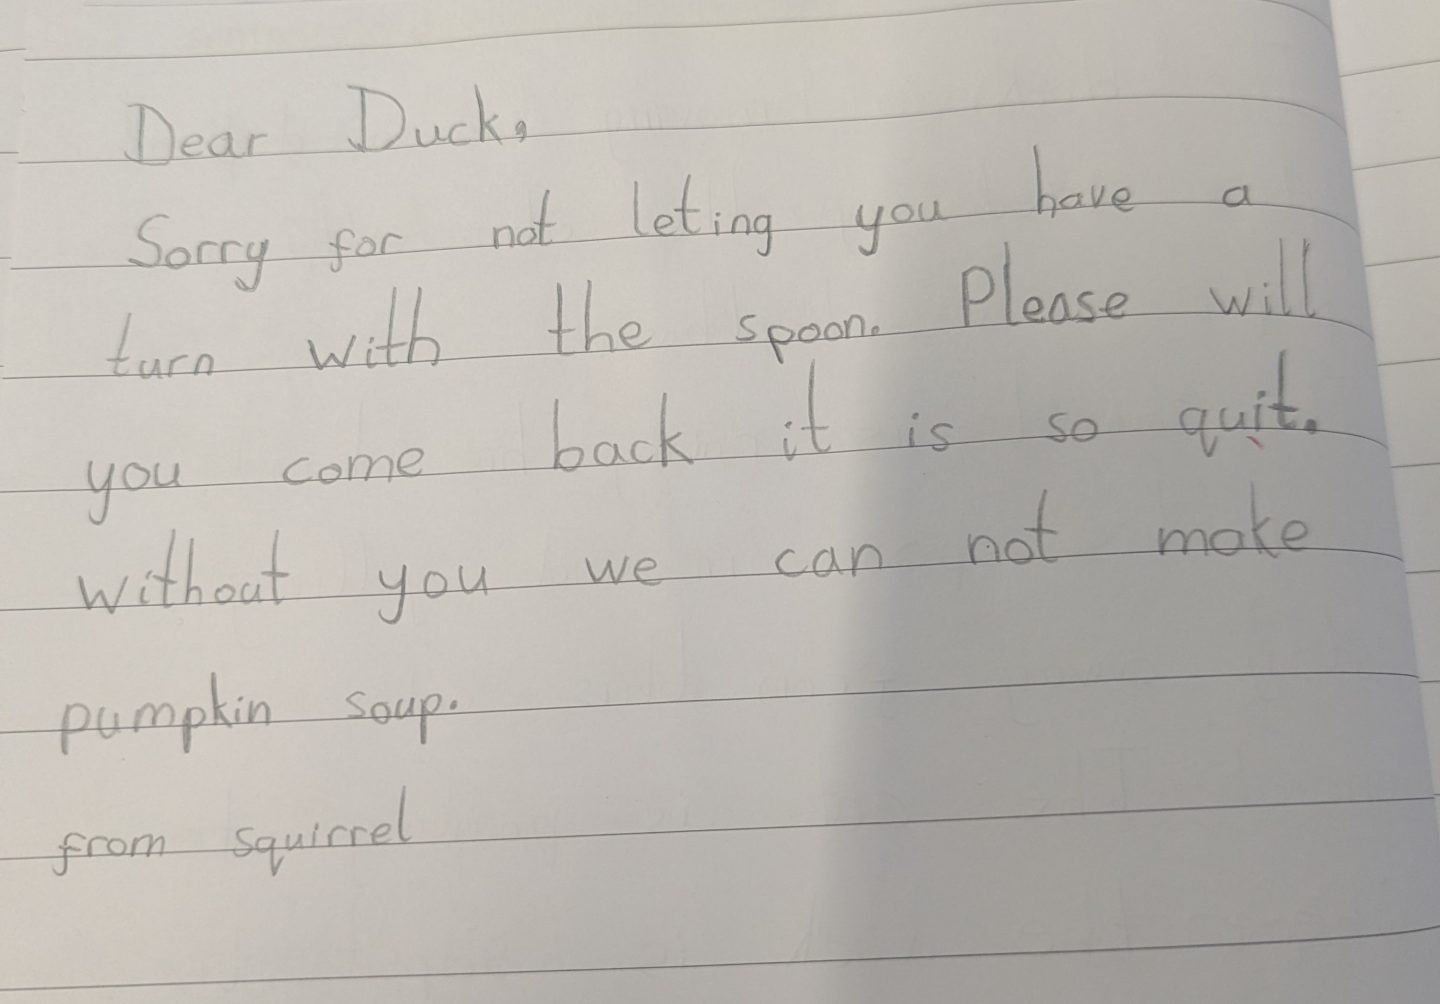 Dear Duck,
Sorry for not leting you have a
turn with the spoon. Please will
you come back it is so quit.
without you we can not make
pumpkin soup.
from squirrel